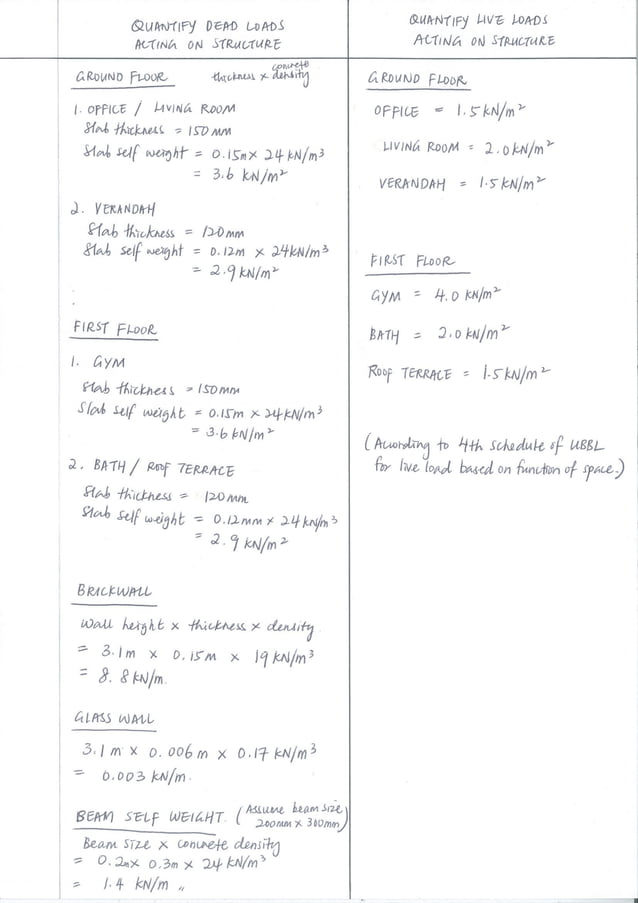 QUANTIFY DEAD LOADS
ACTING ON STRUCTURE
GROUND FLOOR
thickness x concrete density
1. OFFICE / LIVING ROOM
Slab thickness = 150 mm
Slab self weight = 0.15m x 24 kN/m³
= 3.6 kN/m²
2. VERANDAH
Slab thickness = 120mm
Slab self weight = 0.12m x 24kN/m³
= 2.9 kN/m²
FIRST FLOOR
1. GYM
Slab thickness = 150mm
Slab self weight = 0.15m x 24kN/m³
= 3.6 kN/m²
2. BATH / ROOF TERRACE
Slab thickness = 120mm
Slab self weight = 0.12mm x 24 kN/m³
= 2.9 kN/m²
BRICKWALL
Wall height x thickness x density
= 3.1m x 0.15m x 19 kN/m³
= 8.8 kN/m.
GLASS WALL
3.1 m x 0.006 m x 0.17 kN/m³
= 0.003 kN/m.
BEAM SELF WEIGHT. (Assume beam size
200mm x 300mm)
Beam size x concrete density
= 0.2m x 0.3m x 24 kN/m³
= 1.4 kN/m „
QUANTIFY LIVE LOADS
ACTING ON STRUCTURE
GROUND FLOOR
OFFICE = 1.5 kN/m²
LIVING ROOM = 2.0 kN/m²
VERANDAH = 1.5 kN/m²
FIRST FLOOR
GYM = 4.0 kN/m²
BATH = 2.0 kN/m²
ROOF TERRACE = 1.5 kN/m²
(According to 4th schedule of UBBL
for live load based on function of space.)